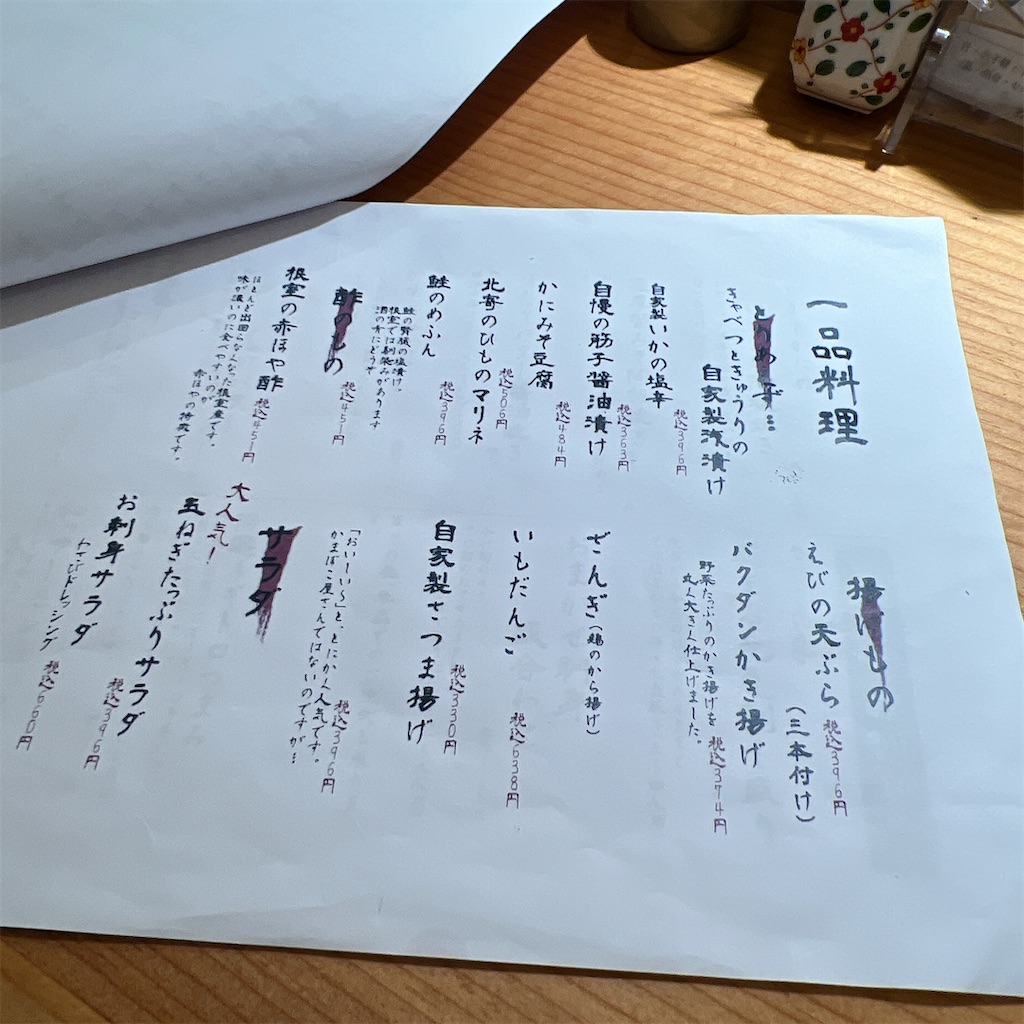 一品料理
とりあえず…
きゃべつときゅうりの
自家製浅漬け
税込396円
自家製いかの塩辛
税込363円
自慢の筋子醤油漬け
税込484円
かにみそ豆腐
税込506円
北寄のひものマリネ
税込396円
鮭のめふん
鮭の腎臓の塩漬け。
根室では馴染みがあります
酒の肴にどうぞ
税込451円
酢のもの
根室の赤ほや酢
税込451円
ほとんど出回らなくなった根室産です。
味が濃いのに食べやすいのが
赤ほやの特徴です。
揚げもの
えびの天ぷら
(三本付け)
税込396円
バクダンかき揚げ
野菜たっぷりのかき揚げを
丸く大きく仕上げました。
税込374円
ざんぎ(鶏のから揚げ)
税込638円
いもだんご
税込330円
自家製さつま揚げ
税込396円
「おいしーい〜」と、とにかく人気です。
かまぼこ屋さんではないのですが…
サラダ
大人気!
玉ねぎたっぷりサラダ
税込396円
お刺身サラダ
わさびドレッシング
税込660円